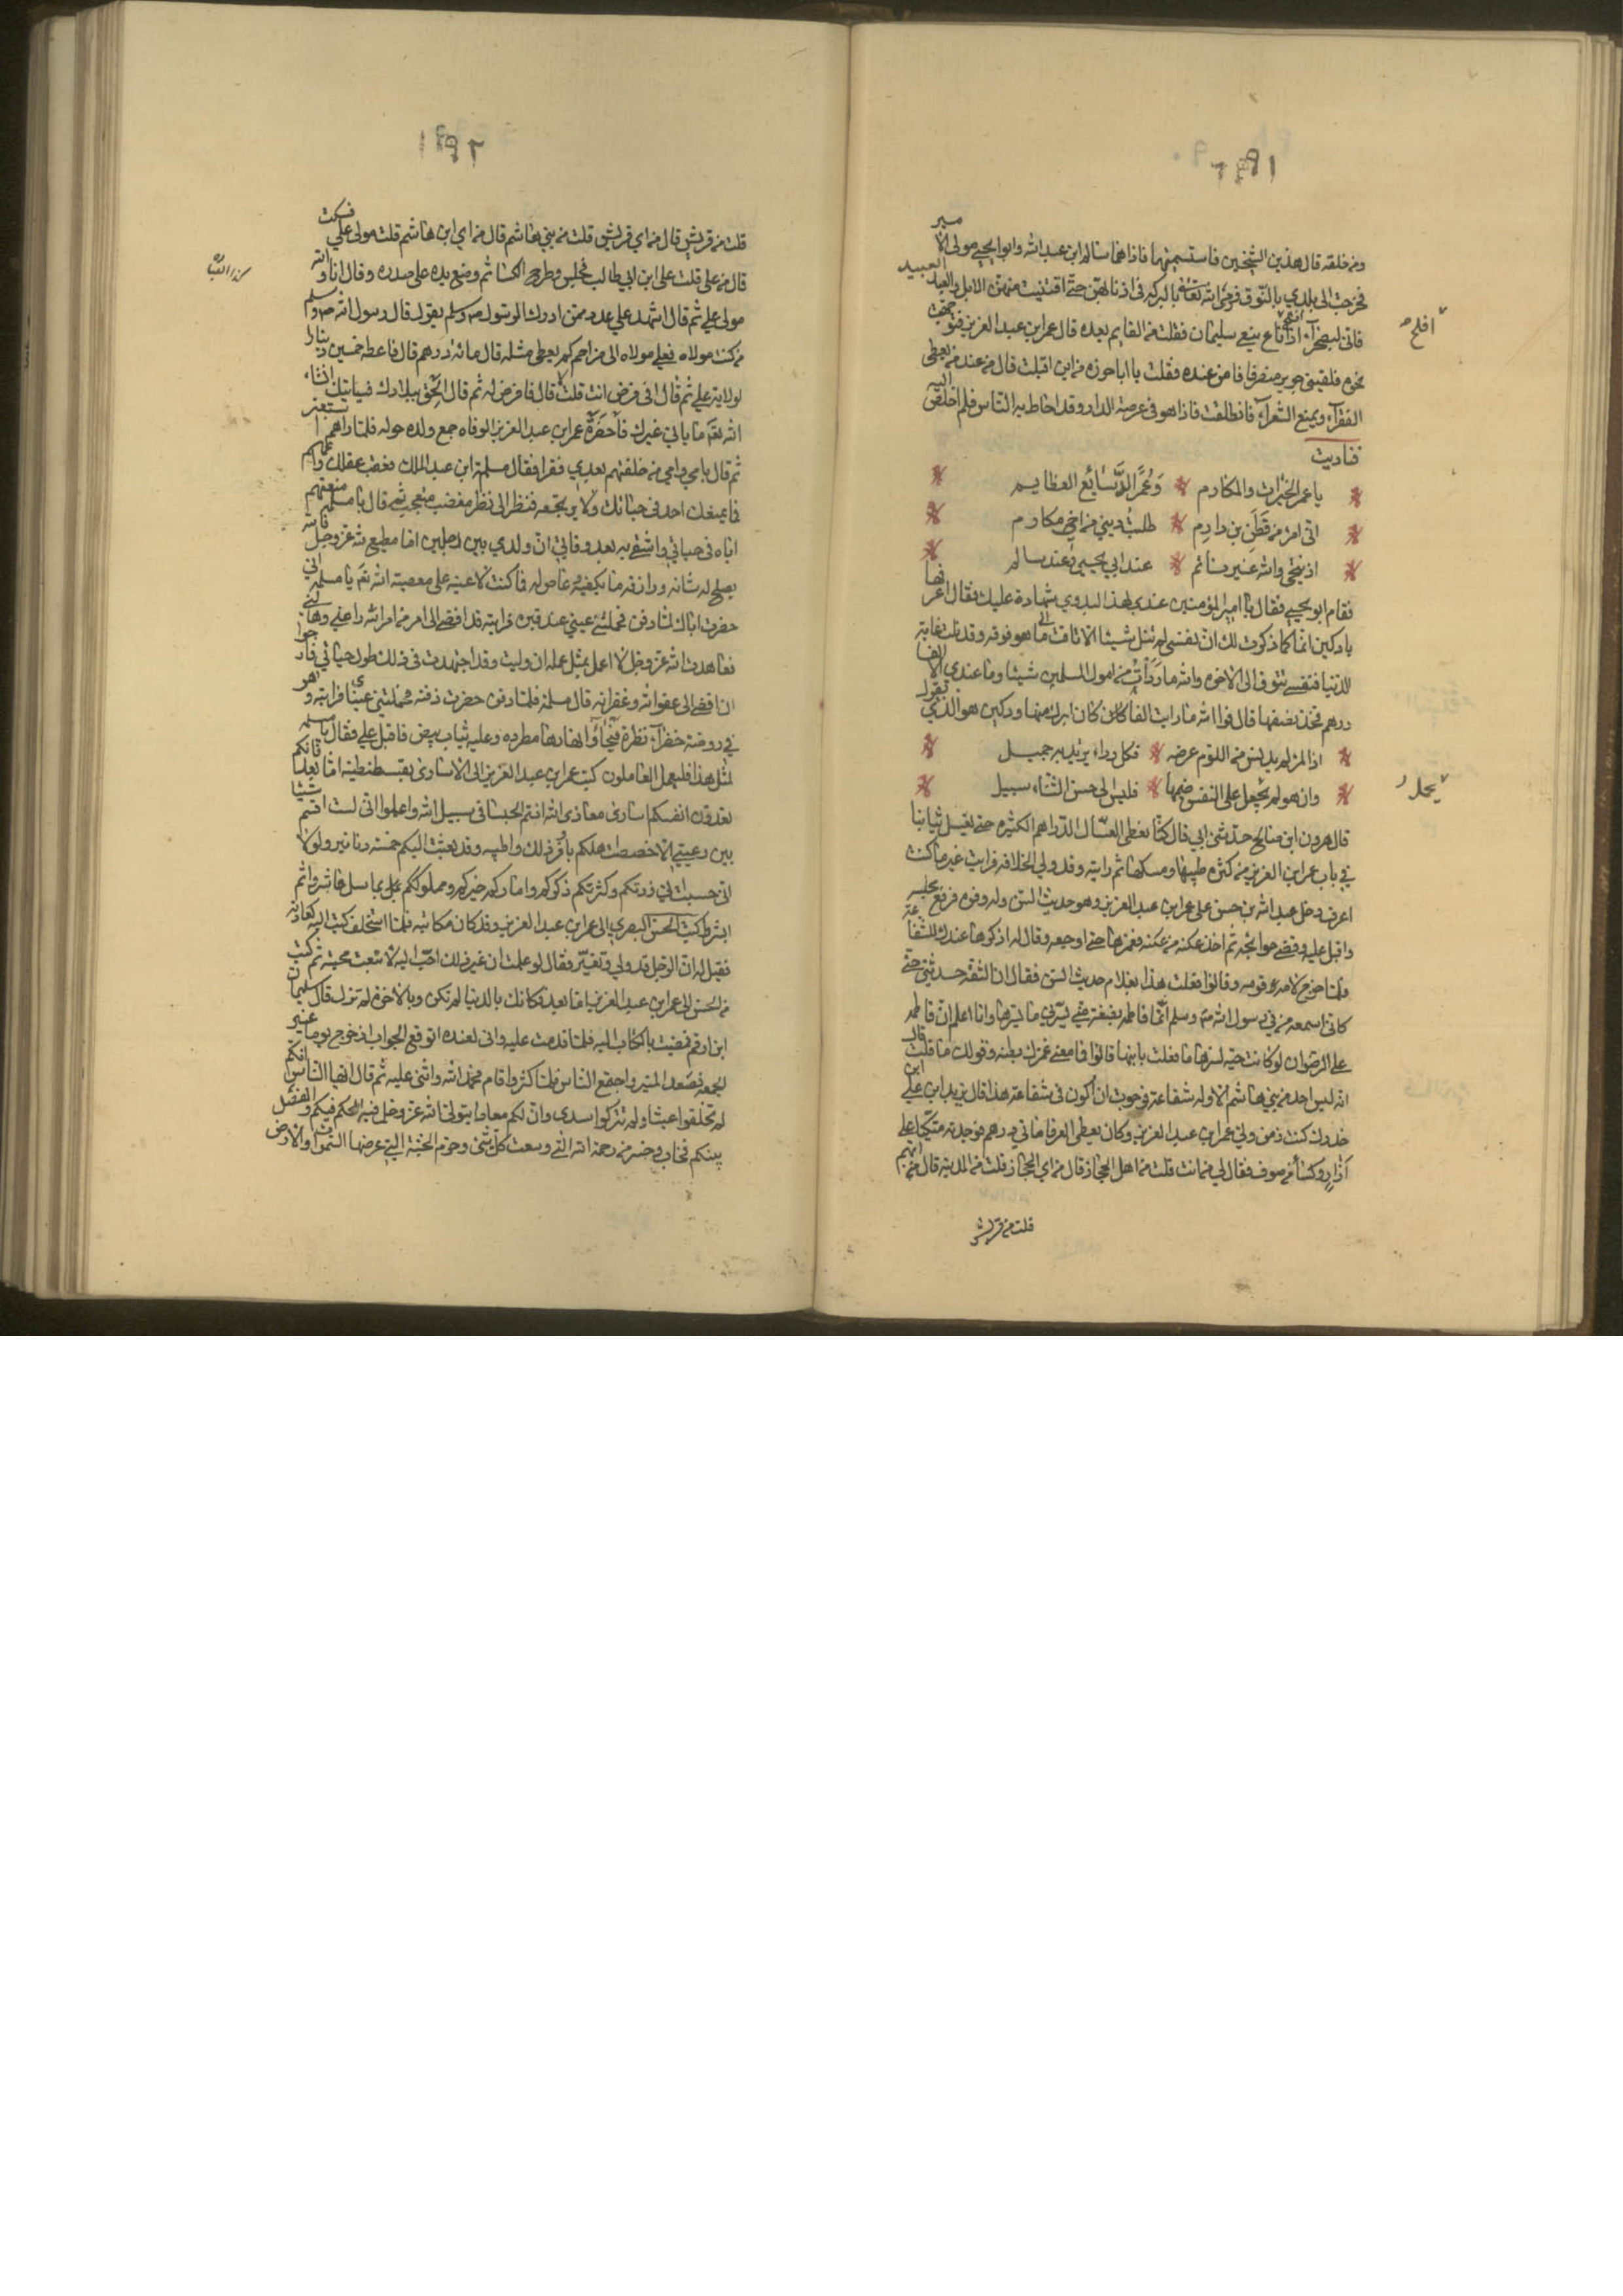 ومن خلقه قال هذين الشيخين فاستسميتهما فاذا هما سالم ابن عبد الله وابو يحيى مولى الامير
فخرجت الى بلدي بالنوق فرمى الله تعالى بالبركة في اذنابهن حتى اقتنيت منهن الابل والعبيد
فاني لبصحرآء اذا ناع ينعي سليمان فقلت فمن القايم بعده قال عمر ابن عبد العزيز فتوجهت
نحوه فلقيني جرير منصرفا من عنده فقلت يا ابا حزره من اين اقبلت قال من عند من يعطي
الفقرآء ويمنع الشعرآء فانطلقت فاذا هو في عرصة الدار وقد احاط به الناس فلم اخلص اليه
فناديت
يا عمر الخيرات والمكارم * وعمر الدسائع العظايم
اني امرؤ من قطن بن دارم * طلبت ديني من اخي مكارم
اذ ننتجي والله غير نائم * عند ابي يحيى وعند سالم
فقام ابو يحيى فقال يا امير المؤمنين عندي لهذا البدوي شهادة عليك فقال اعرفها
يا دكين انما كما ذكرت لك ان نفسي لم تنل شيئا الا تاقت الى ما هو فوقه وقد نلت غاية
الدنيا فنفسي تتوق الى الاخرة والله ما رزأت من امول المسلمين شيئا وما عندي الا الفا
درهم فخذ نصفها قال فوالله ما رايت الفا كان ابرك منها ودكين هو الذي يقول
اذا المرء لم يدنس من اللوم عرضه * فكل رداء يرتديه جميل
وان هو لم يحمل على النفس ضيمها * فليس الى حسن الثناء سبيل
قال هرون ابن صالح حدثني ابي قال كنا نعطي الغسال الدراهم الكثيرة حتى يغسل ثيابنا
في ثياب عمر ابن العزيز من كثرة طيبها ومسكها ثم رايته وقد ولي الخلافة فرايت غير ما كنت
اعرف دخل عبد الله بن حسن على عمر ابن عبد العزيز وهو حديث السن وله وفرة فرفع مجلسه
واقبل عليه وقضى حوايجه ثم اخذ عكنة من عكنه فغمزها حتى اوجعه وقال له اذكرها عندك للشفاعة
فلما خرج لامه قومه وقالوا فعلت هذا بغلام حديث السن فقال ان الثقة حدثني حتى
كاني اسمعه من في رسول الله صم وسلم انما فاطمة بضعة مني يسرني ما يسرها وانا اعلم ان فاطمة
على الرضوان لو كانت حية لسرها ما فعلت بابنها قالوا فما معنى غمزك بطنه وقولك ما قلت قال
انه ليس احد من بني هاشم الا وله شفاعة فرجوت ان اكون في شفاعة هذا قال يزيد ابن علي
كنت زمن ولي عمر ابن عبد العزيز وكان يعطي الغرفا مائتي درهم فوجدته متكيا على
ازار وكسأ من صوف فقال لي ممن انت قلت من اهل الحجاز قال من اي الحجاز قلت من المدينة قال من ايهم
قلت من قريش
افلح
يحمل
قلت من قريش قال من اي قريش قلت من بني هاشم قال من اي ابن هاشم قلت مولى علي فسكت
قال من علي قلت علي ابن ابي طالب فجلس وطرح الكسا ثم وضع يده على صدره وقال انا والله
مولى علي ثم قال اشهد علي عدد ممن ادرك الرسول صم وسلم يقول قال رسول الله صم وسلم
من كنت مولاه فعلي مولاه الى مزاحم كم يعطي مثله قال مائة درهم قال فاعطه خمسين دينارا
لولاية علي ثم قال افي فرض انت قلت لا قال فافرض له ثم قال الحق ببلادك فسياتيك انشاء
الله تعم ما ياتي غيرك فلما حضرة عمر ابن عبد العزيز الوفاه جمع ولده حوله فلما راهم استعبر
ثم قال بابي وامي من خلفتهم بعدي فقرا فقال مسلمة ابن عبد الملك
فما يمنعك احد في حياتك ولا يرتجعه فنظر الي نظر مغضب متعجب ثم قال يا مسلمة منعتهم
اياه في حياتي واشقى به بعد وفاتي ان ولدي بين رجلين اما مطيع لله عز وجل فالله
يصلح له شانه ورازقه ما يكفيه او عاص له فما كنت لاعينه على معصية الله تعم يا مسلمة اني
حضرت اباك لما دفن فحملتني عيني عند قبره فرايته قد افضى الى امر من امر الله راعني وهالني
فعاهدت الله عز وجل لا اعمل بمثل عمله ان وليت وقد اجتهدت في ذلك طول حياتي فارجوا
ان افضي الى عفو الله وغفرانه قال مسلمة فلما دفن حضرت دفنه فحملتني عيني فرايته وهو
في روضة خضرآء نظرة فيحآء وانهارها مطرده وعليه ثياب بيض فاقبل علي فقال يا مسلمة
لمثل هذا فليعمل العاملون كتب عمر ابن عبد العزيز الى الاسارى بقسطنطينية اما بعد فانكم
تعدون انفسكم اسارى معاذ الله انتم الحبسا في سبيل الله واعلموا اني لست اقسم شيئا
بين رعيتي الا خصصت اهلكم باوفر ذلك واطيبه وقد بعثت اليكم خمسة دنانير ولولا
اني
كتب الحسن البصري الى عمر ابن عبد العزيز وقد كان مكاتبه فلما استخلف كتب اليه كعادته
فقيل له ان الرجل قد ولي وتغير فقال لو علمت ان غير ذلك احب اليه لاتبعت محبته ثم كتب
من الحسن الى عمر ابن عبد العزيز اما بعد فكانك بالدنيا لم تكن وبالاخرة لم تزل قال سليمان
ابن ارقم فمضيت بالكتاب اليه فلما قدمت عليه واني لعنده اتوقع الجواب اذ خرج يوما غير
الجمعة فصعد المنبر واجتمع الناس فلما كثروا قام فحمد الله واثنى عليه ثم قال ايها الناس انكم
لم تخلقوا عبثا ولم تتركوا سدى وان لكم معادا يتولى الله عز وجل فيه الحكم فيكم والفصل
بينكم فخاب وخسر من رحمة الله التي وسعت كل شيء وحرم الجنة التي عرضها السموات والارض